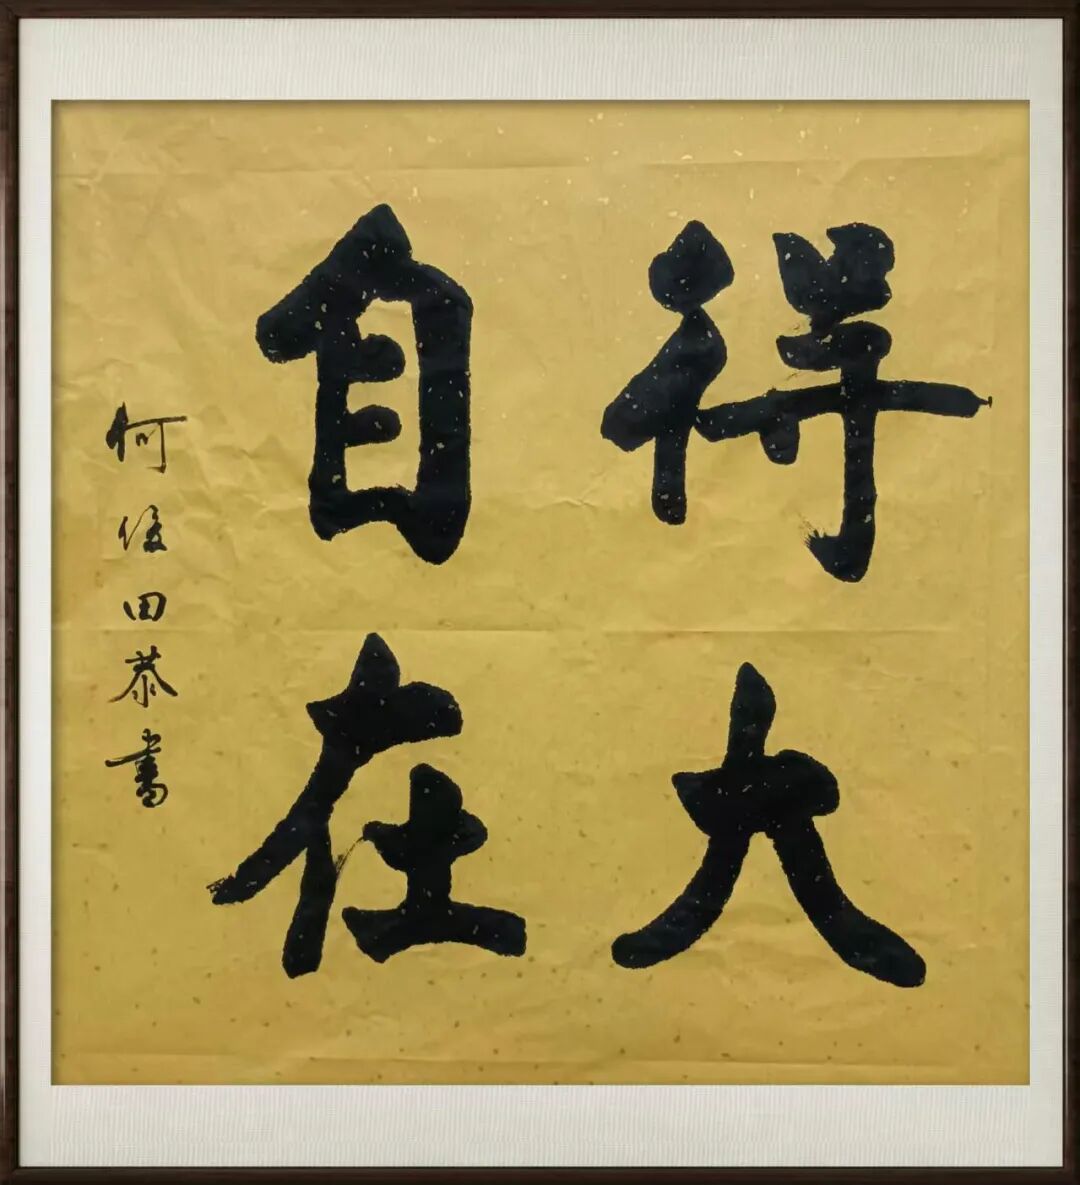 得大
自在
何俊田恭書